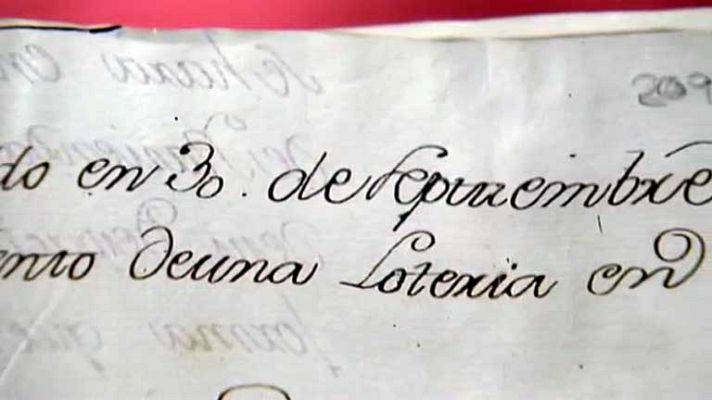 209
do en 30. de Septiembre
ento de una Loteria en